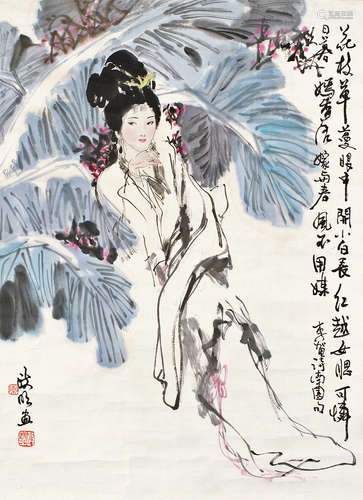 花枝草蔓眼中開小白長紅越女腮可憐
日暮嫣香落嫁與春風不用媒
李賀詩南園句
明画